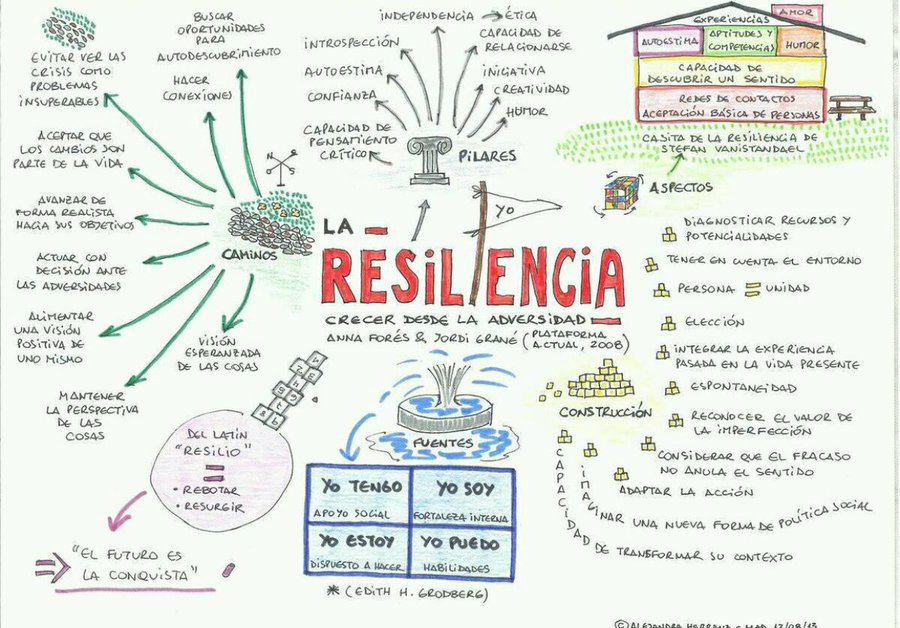 LA
RESILIENCIA
CRECER DESDE LA ADVERSIDAD
ANNA FORÉS & JORDI GRANÉ (PLATAFORMA
ACTUAL, 2008)
YO
CAMINOS
EVITAR VER LAS
CRISIS COMO
PROBLEMAS
INSUPERABLES
BUSCAR
OPORTUNIDADES
PARA
AUTODESCUBRIMIENTO
HACER
CONEXIONES
ACEPTAR QUE
LOS CAMBIOS SON
PARTE DE LA VIDA
AVANZAR DE
FORMA REALISTA
HACIA SUS OBJETIVOS
ACTUAR CON
DECISIÓN ANTE
LAS ADVERSIDADES
ALIMENTAR
UNA VISIÓN
POSITIVA DE
UNO MISMO
MANTENER
LA PERSPECTIVA
DE LAS
COSAS
VISIÓN
ESPERANZADA
DE LAS COSAS
PILARES
INDEPENDENCIA → ÉTICA
INTROSPECCIÓN
CAPACIDAD DE
RELACIONARSE
AUTOESTIMA
INICIATIVA
CONFIANZA
CREATIVIDAD
HUMOR
CAPACIDAD DE
PENSAMIENTO
CRÍTICO
AMOR
EXPERIENCIAS
AUTOESTIMA
APTITUDES Y
COMPETENCIAS
HUMOR
CAPACIDAD DE
DESCUBRIR UN SENTIDO
REDES DE CONTACTOS
ACEPTACIÓN BÁSICA DE PERSONAS
CASITA DE LA RESILIENCIA DE
STEFAN VANISTANDAEL
ASPECTOS
DIAGNOSTICAR RECURSOS Y
POTENCIALIDADES
TENER EN CUENTA EL ENTORNO
PERSONA = UNIDAD
ELECCIÓN
INTEGRAR LA EXPERIENCIA
PASADA EN LA VIDA PRESENTE
ESPONTANEIDAD
RECONOCER EL VALOR DE
LA IMPERFECCIÓN
CONSIDERAR QUE EL FRACASO
NO ANULA EL SENTIDO
ADAPTAR LA ACCIÓN
IMAGINAR UNA NUEVA FORMA DE POLÍTICA SOCIAL
CAPACIDAD DE TRANSFORMAR SU CONTEXTO
CONSTRUCCIÓN
FUENTES
YO TENGO
APOYO SOCIAL
YO SOY
FORTALEZA INTERNA
YO ESTOY
DISPUESTO A HACER
YO PUEDO
HABILIDADES
* (EDITH H. GRODBERG)
DEL LATIN
"RESILIO"
=
• REBOTAR
• RESURGIR
"EL FUTURO ES
LA CONQUISTA"